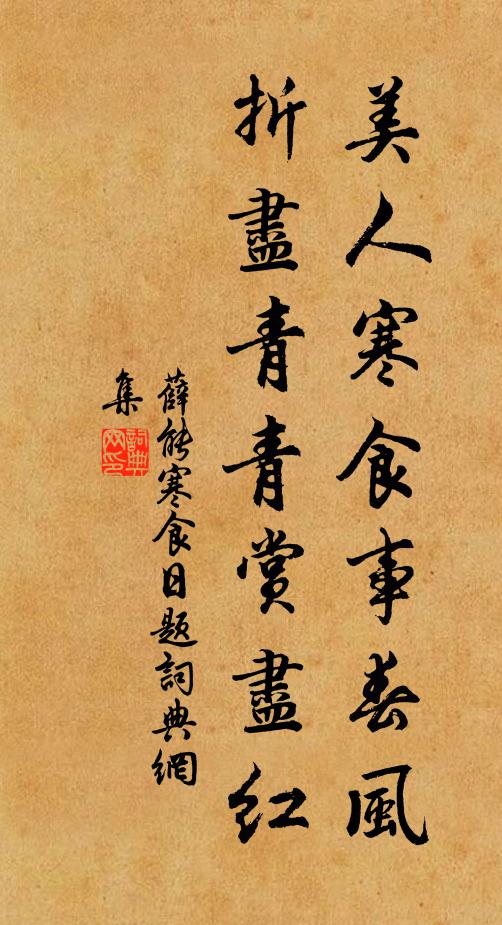 美人寒食事春風
折盡青青賞盡紅
薛能寒食日題詞典網
集
詞典
网印